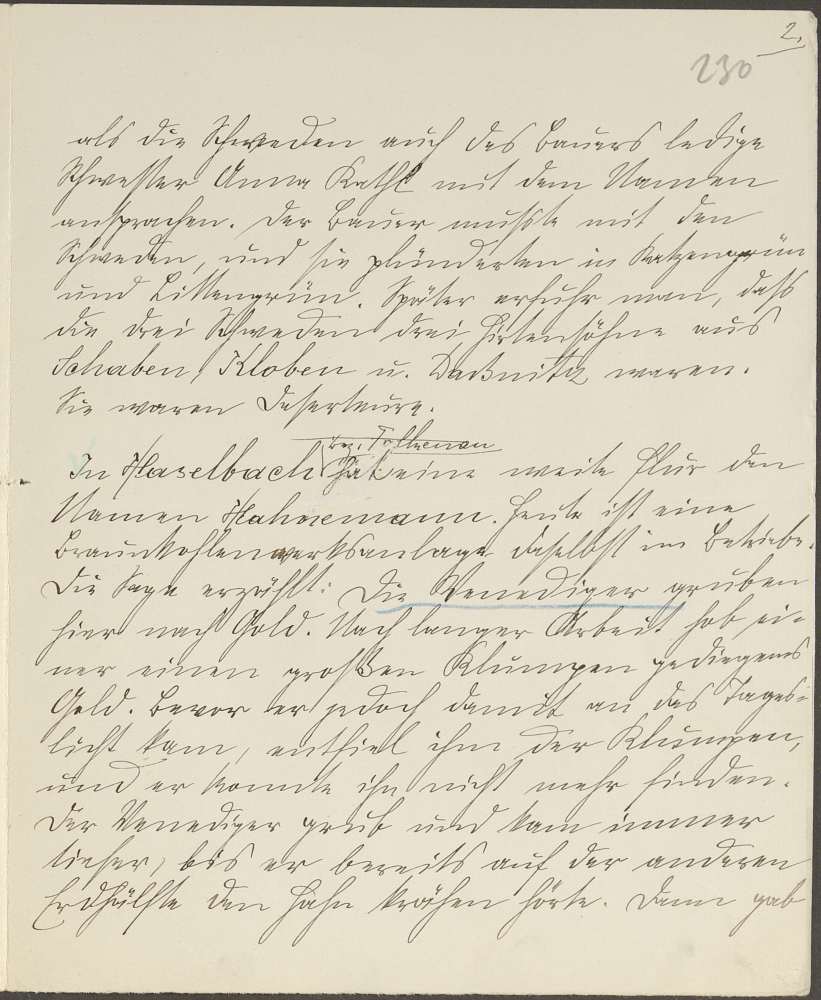 2.
230
als die Schweden auch des Bauers ledige
Schwester Anna Kathl mit dem Namen
ansprachen. Der Bauer mußte mit den
Schweden, und sie plünderten in Katzengrün
und Littengrün. Später erfuhr man, dass
die drei Schweden drei Hirtensöhne aus
Schaben, Kloben u. Daßnitz waren.
Sie waren Deserteure.
Bez. Falkenau
In Haselbach hat eine weite Flur den
Namen Hahnemann. Heute ist eine
Braunkohlenwerksanlage daselbst im Betriebe.
Die Sage erzählt: Die Venediger gruben
hier nach Gold. Nach langer Arbeit hob ei-
ner einen großen Klumpen gediegenes
Gold. Bevor er jedoch damit an das Tages-
licht kam, entfiel ihm der Klumpen,
und er konnte ihn nicht mehr finden.
Der Venediger grub und kam immer
tiefer, bis er bereits auf der anderen
Erdhälfte den Hahn krähen hörte. Dann gab